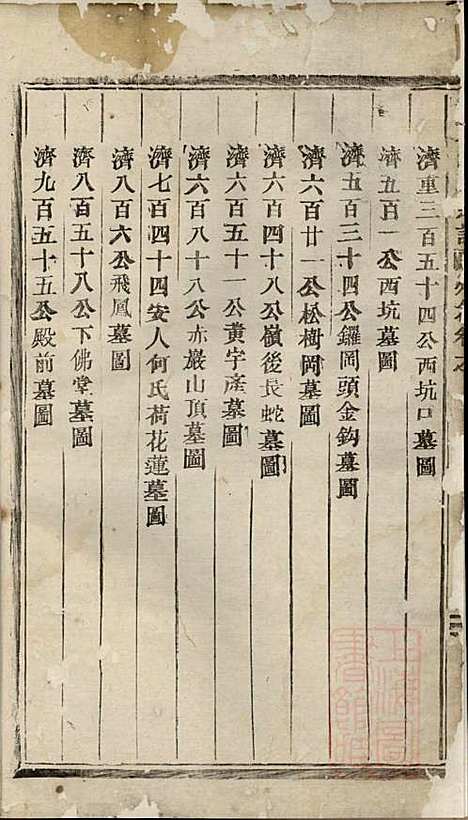 濟重三百五十四公西坑口墓圖
濟五百一公西坑墓圖
濟五百三十四公鑼岡頭金鈎墓圖
濟六百廿一公松樹岡墓圖
濟六百四十八公嶺後長蛇墓圖
濟六百五十一公黄字產墓圖
濟六百八十八公赤巖山頂墓圖
濟七百四十四安人何氏荷花蓮墓圖
濟八百六公飛鳳墓圖
濟八百五十八公下佛堂墓圖
濟九百五十五公殿前墓圖